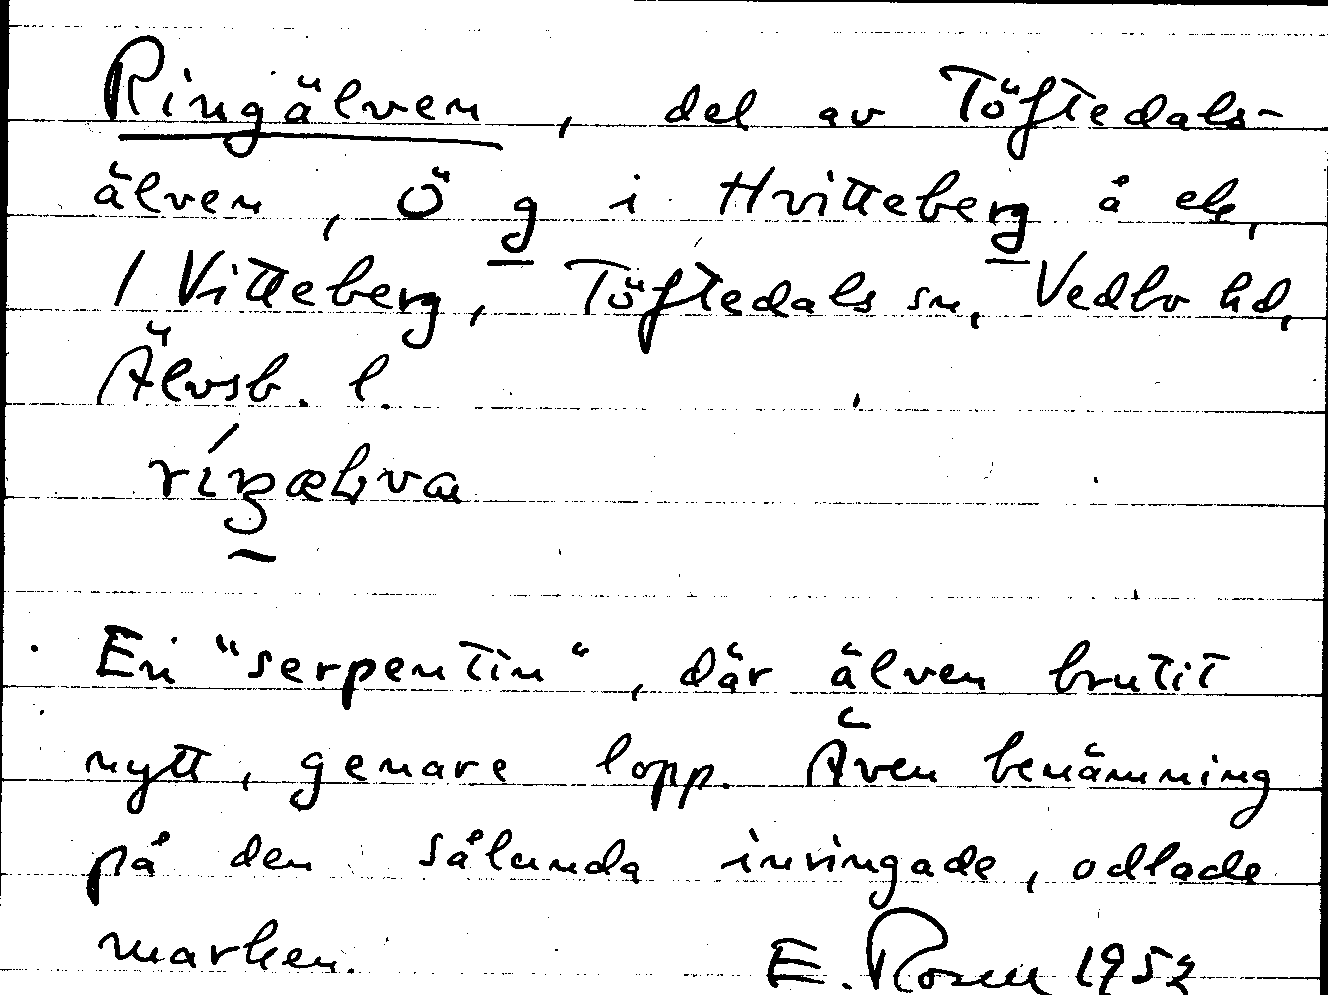 Ringälven, del av Töftedals-
älven, Ö g i Hvitteberg å ek,
/ Vitteberg, Töftedals sn, Vedbo hd,
Älvsb. l.
En "serpentin", där älven brutit
nytt, genare lopp. Även benämning
på den sålunda inringade, odlade
marken. E. Rosen 1952